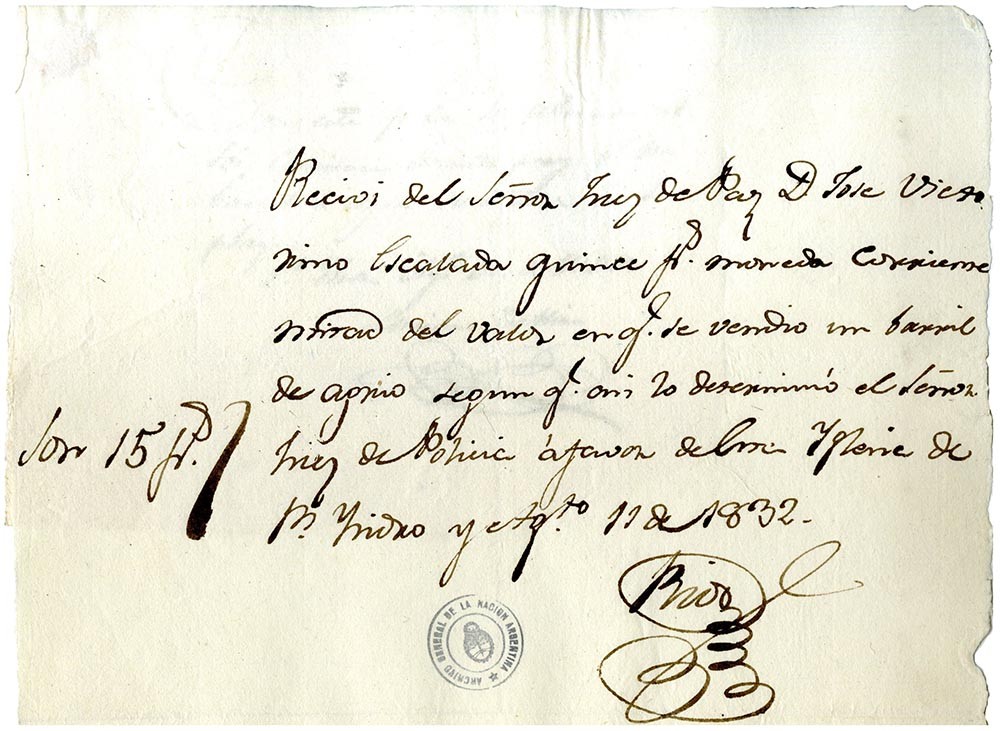 Recivi del Señor Juez de Paz D Jose Victo
rino Escalada quince ps. moneda corriente
mitad del valor en q.e se vendio un barril
de q.e asi lo determinó el Señor
Juez de Policia á favor de Yglesia de
Sn Ysidro y Agto 11 de 1832.
Son 15 ps.
ARCHIVO GENERAL DE LA NACION ARGENTINA